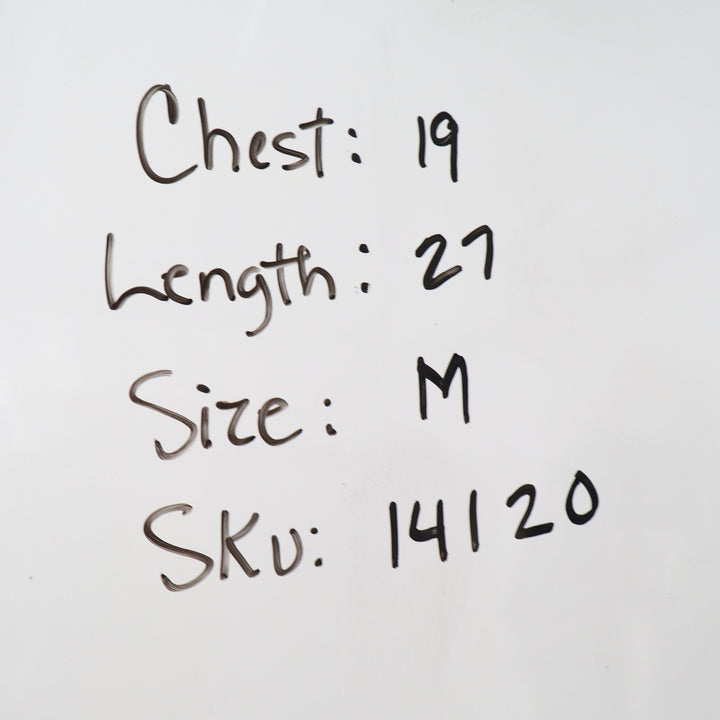 Chest: 19
Length: 27
Size: M
SKU: 14120